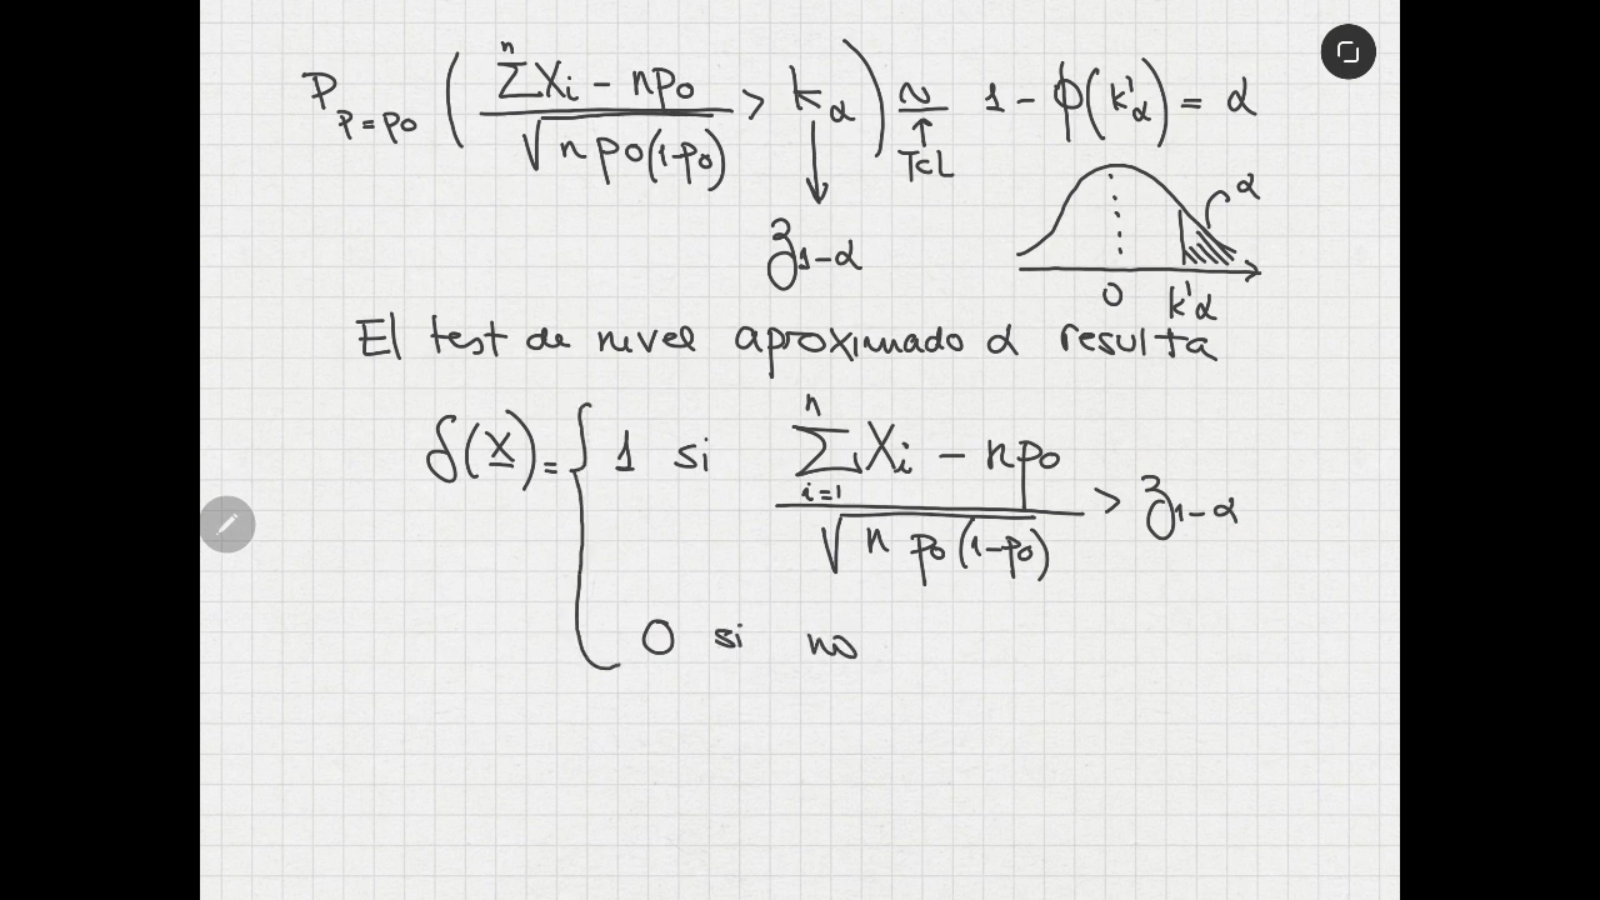 P_{p=p0} ( (∑^n Xi - np0) / √(n p0(1-p0)) > kα ) ≃ 1 - ϕ(k'α) = α
↑
TCL
↓
z1-α
α
0 k'α
El test de nivel aproximado α resulta
δ(X) = { 1 si (∑_{i=1}^n Xi - np0) / √(n p0(1-p0)) > z1-α
0 si no